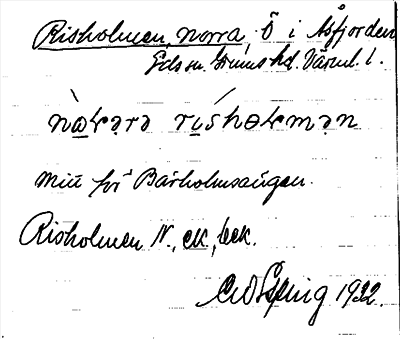 Risholmen, norra, Ö i Åsfjorden
Eds sn. Grums hd. Värml. l.
nò̱ɽərə ri̱śhoɽmən
mitt för Bärholmsängen.
Risholmen N., ek, bek.
1932.